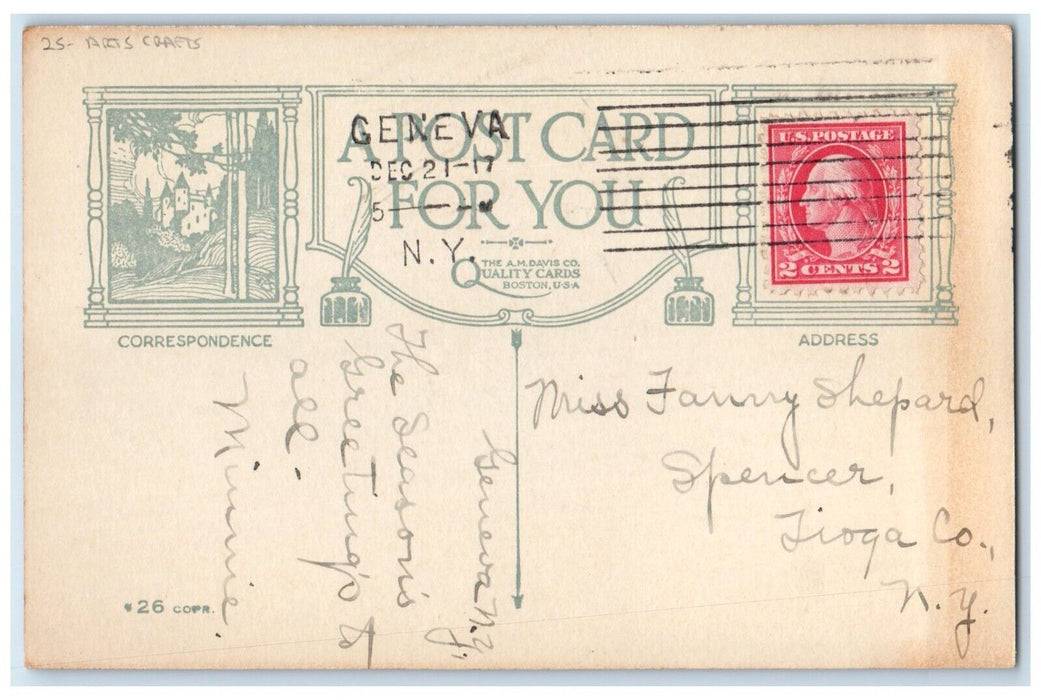 25- ARTS CRAFTS
A POST CARD
FOR YOU
GENEVA
DEC 21-17
N.Y.
U.S. POSTAGE
2 CENTS 2
THE A.M. DAVIS CO.
QUALITY CARDS
BOSTON, U.S.A
CORRESPONDENCE
ADDRESS
Geneva N.Y.
The Season's
Greetings to
all.
Minnie.
Miss Fanny Shepard,
Spencer,
Tioga Co.,
N.Y.
26 COPR.